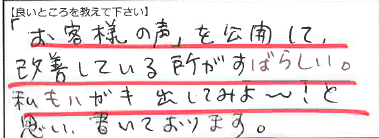 【良いところを教えて下さい】
「お客様の声」を公開して、
改善している所がすばらしい。
私もハガキ出してみよ〜!と
思い、書いております。